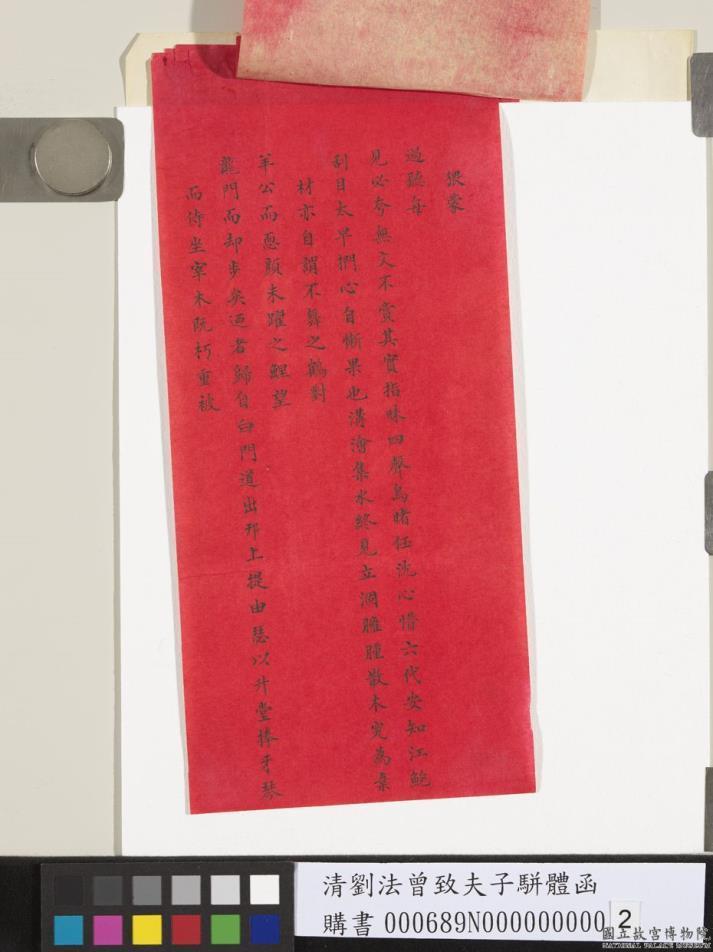 猥蒙
過聽每
見必夸無文不賞其實指味四聲烏睹任沈心懵六代安知江鮑
刮目太早捫心自慚果也溝澮集水終見立涸臃腫散木究為棄
材亦自謂不舞之鶴對
羊公而恧顏未躍之鯉望
龍門而却步矣迺者歸自白門道出邗上提由瑟以升堂捧牙琴
而侍坐宰木既朽重被
清劉法曾致夫子駢體函
購書 000689N000000000 2
國立故宮博物院
NATIONAL PALACE MUSEUM